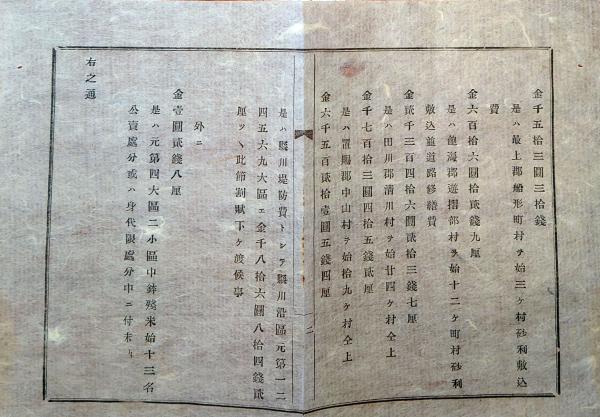 金千五拾三圓三拾錢
是ハ最上郡船形町村ヲ始三ヶ村砂利敷込
費
金六百拾六圓拾貳錢九厘
是ハ飽海郡遊摺部村ヲ始十二ヶ町村砂利
敷込並道路修繕費
金貳千三百四拾六圓貳拾三錢七厘
是ハ田川郡清川村ヲ始廿四ヶ村仝上
金千七百拾三圓四拾五錢貳厘
是ハ置賜郡中山村ヲ始拾九ヶ村仝上
金六千五百貳拾壹圓五錢四厘
二
是ハ縣川堤防費トシテ縣川沿區元第一二
四五六九大區エ金千八拾六圓八拾四錢貳
厘ツヽ此節割賦下ヶ渡候事
外ニ
金壹圓貳錢八厘
是ハ元第四大區二小區中 殘米始十三名
公賣處分或ハ身代限處分中ニ付未
右之通